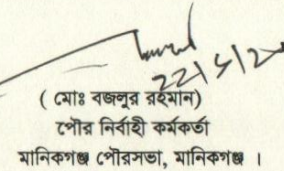 ( মোঃ বজলুর রহমান)
পৌর নির্বাহী কর্মকর্তা
মানিকগঞ্জ পৌরসভা, মানিকগঞ্জ ।